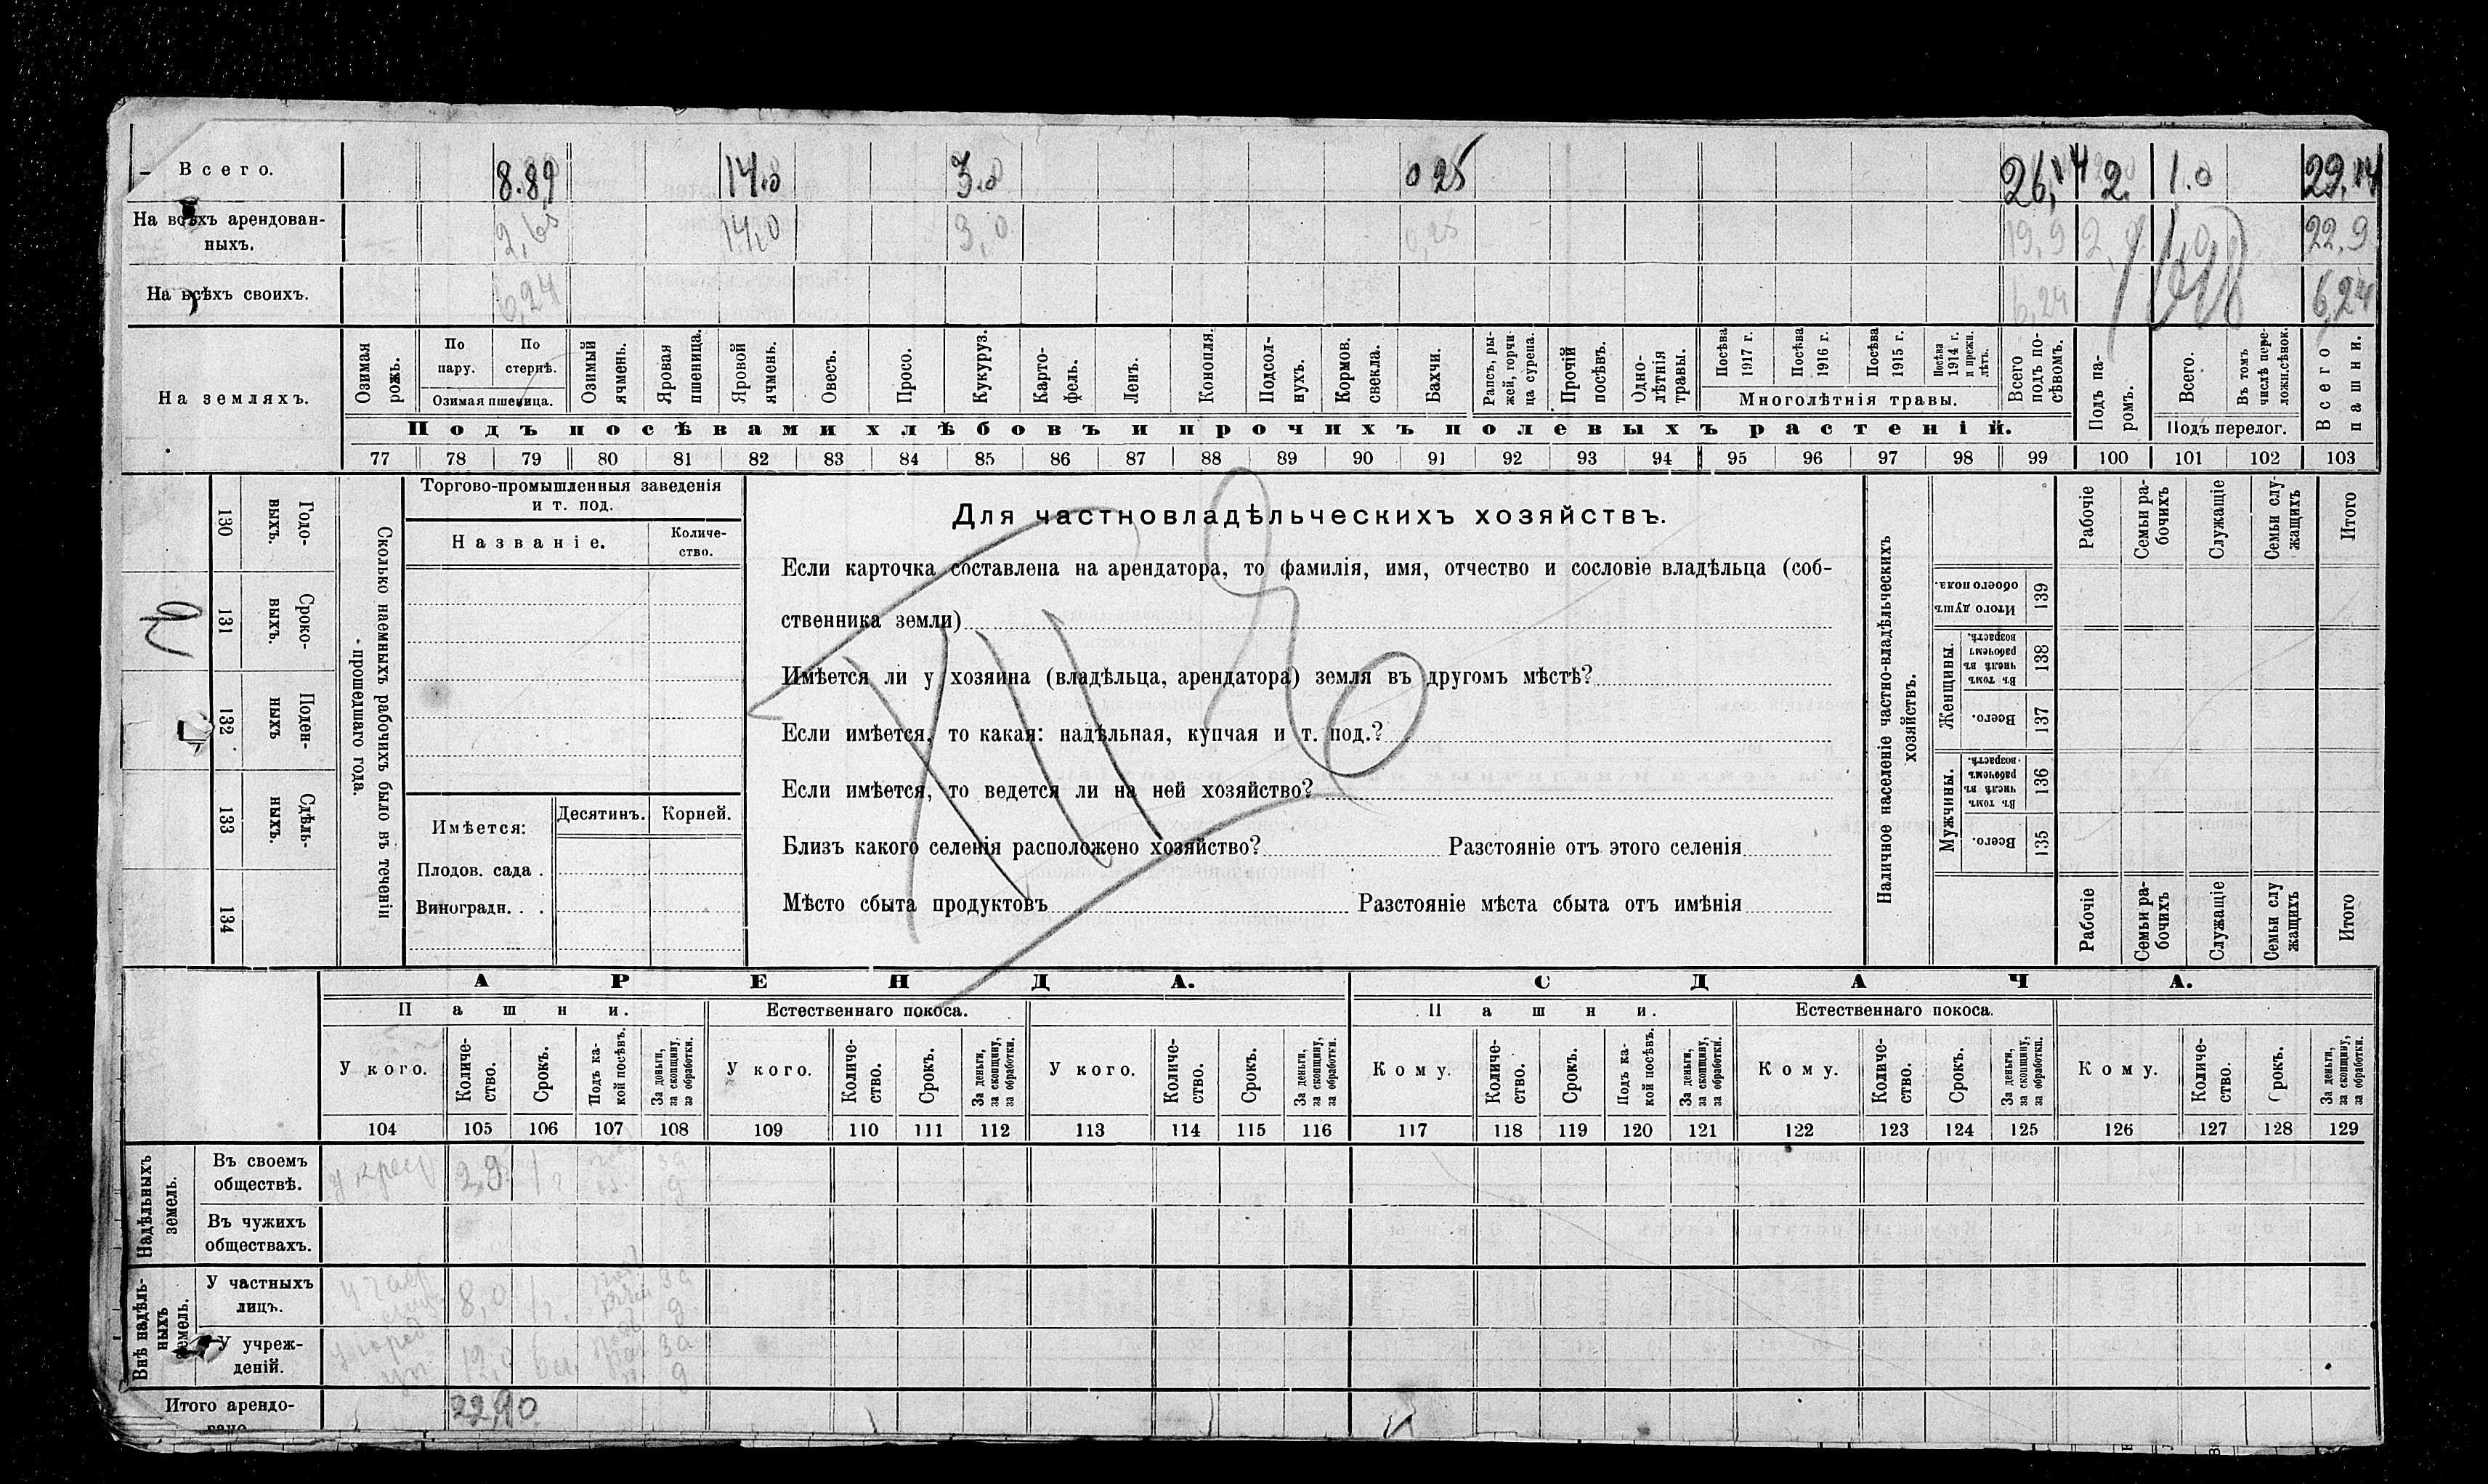 Всего. 8.89 14.0 3.0 0 25 26,14 2. 1.0 29,14
На всѣхъ арендован-
ныхъ. 2,65 14,0 3,0 0,25 19,9 2, 1,0 22,9
На всѣхъ своихъ. 6,24 6,24 6,24
На земляхъ.
Озимая рожь.
По пару.
По стернѣ.
Озимая пшеница.
Озимый ячмень.
Яровая пшеница.
Яровой ячмень.
Овесъ.
Просо.
Кукуруз.
Карто-
фель.
Ленъ.
Конопля.
Подсол-
нухъ.
Кормов. свекла.
Бахчи.
Рапсъ, ры-
жей, горчи-
ца сурепа.
Прочій посѣвъ.
Одно-
лѣтнія травы.
Посѣва 1917 г.
Посѣва 1916 г.
Посѣва 1915 г.
Посѣва 1914 г. и прежн. лѣтъ.
Многолѣтнія травы.
Всего подъ по-
сѣвомъ.
Подъ па-
ромъ.
Всего.
Въ томъ числѣ пере-
ложн.сѣнок.
Подъ перелог.
Всего пашни.
Подъ посѣвами хлѣбовъ и прочихъ полевыхъ растеній.
77 78 79 80 81 82 83 84 85 86 87 88 89 90 91 92 93 94 95 96 97 98 99 100 101 102 103
Годо-
выхъ.
130
Сроко-
выхъ.
131
Поден-
ныхъ
132
Сдѣль-
ныхъ.
133
134
Сколько наемныхъ рабочихъ было въ теченіи
прошедшаго года.
Торгово-промышленныя заведенія
и т. под.
Названіе.
Количе-
ство.
Имѣется:
Десятинъ.
Корней.
Плодов. сада .
Виноградн. . .
Для частновладѣльческихъ хозяйствъ.
Если карточка составлена на арендатора, то фамилія, имя, отчество и сословіе владѣльца (соб-
ственника земли)
Имѣется ли у хозяина (владѣльца, арендатора) земля въ другомъ мѣстѣ?
Если имѣется, то какая: надѣльная, купчая и т. под.?
Если имѣется, то ведется ли на ней хозяйство?
Близъ какого селенія расположено хозяйство? Разстояніе отъ этого селенія
Мѣсто сбыта продуктовъ Разстояніе мѣста сбыта отъ имѣнія
Наличное населеніе частно-владѣльческихъ
хозяйствъ.
Рабочіе
Семьи ра-
бочихъ
Служащіе
Семьи слу-
жащихъ
Итого
Итого душъ обоего пола.
139
Женщины.
Въ томъ числѣ въ рабочемъ возрастѣ.
138
Всего.
137
Мужчины.
Въ томъ числѣ въ рабочемъ возрастѣ.
136
Всего.
135
Рабочіе
Семьи ра-
бочихъ
Служащіе
Семьи слу
жащихъ
Итого
АРЕНДА. СДАЧА.
Пашни. Естественнаго покоса. Пашни. Естественнаго покоса.
У кого.
Количе-
ство.
Срокъ.
Подъ ка-
кой посѣвъ.
За деньги,
за скопщину,
за обработки.
У кого.
Количе-
ство.
Срокъ.
За деньги,
за скопщину,
за обработки.
У кого.
Количе-
ство.
Срокъ.
За деньги,
за скопщину,
за обработки.
Кому.
Количе-
ство.
Срокъ.
Подъ ка-
кой посѣвъ.
За деньги,
за скопщину,
за обработки.
Кому.
Количе-
ство.
Срокъ.
За деньги,
за скопщину,
за обработки.
Кому.
Количе-
ство.
Срокъ.
За деньги,
за скопщину,
за обработки.
104 105 106 107 108 109 110 111 112 113 114 115 116 117 118 119 120 121 122 123 124 125 126 127 128 129
Надѣльныхъ
земель.
Въ своемъ
обществѣ. 2,9 за
Въ чужихъ
обществахъ.
Внѣ надѣль-
ныхъ
земель.
У частныхъ
лицъ. 8,0 за
У учреж-
деній. 12,0 за
Итого арендо-
вано 22,90